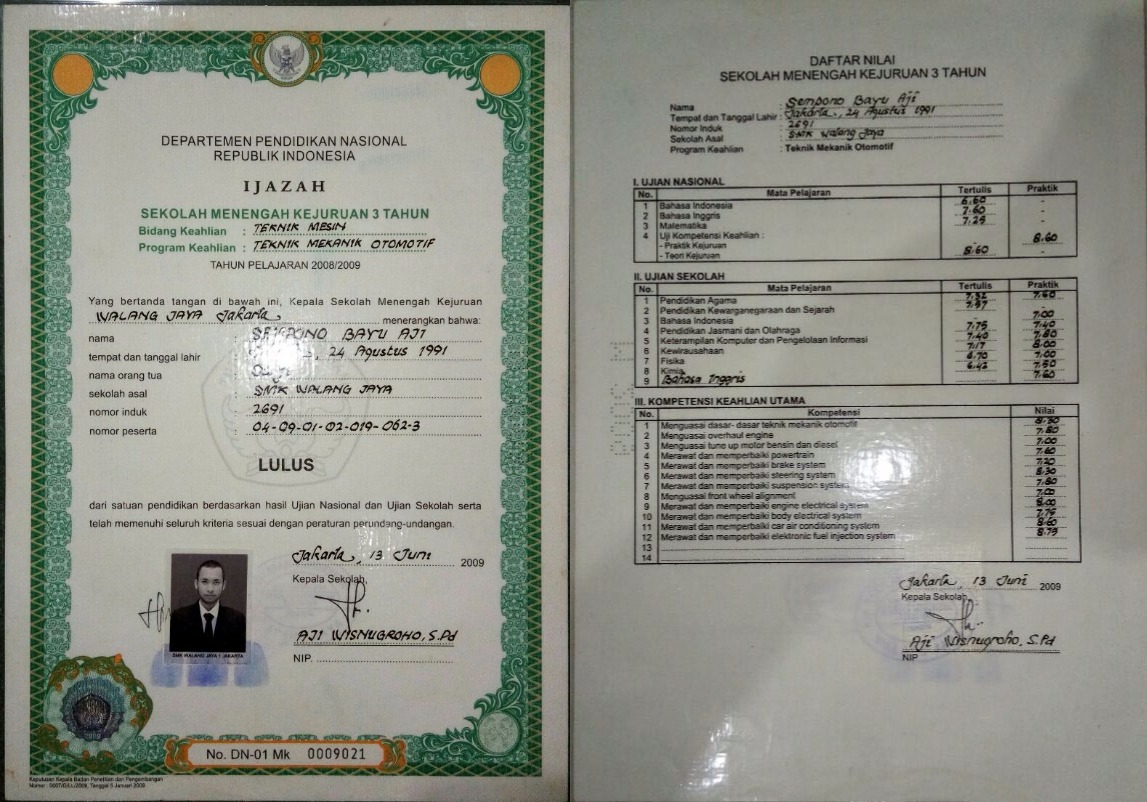 DEPARTEMEN PENDIDIKAN NASIONAL
REPUBLIK INDONESIA
IJAZAH
SEKOLAH MENENGAH KEJURUAN 3 TAHUN
Bidang Keahlian : TEKNIK MESIN
Program Keahlian : TEKNIK MEKANIK OTOMOTIF
TAHUN PELAJARAN 2008/2009
Yang bertanda tangan di bawah ini, Kepala Sekolah Menengah Kejuruan
WALANG JAYA Jakarta menerangkan bahwa:
nama : BAYU AJI
tempat dan tanggal lahir : 24 Agustus 1991
nama orang tua :
sekolah asal : SMK WALANG JAYA
nomor induk : 2691
nomor peserta : 04-09-01-02-019-062-3
LULUS
dari satuan pendidikan berdasarkan hasil Ujian Nasional dan Ujian Sekolah serta
telah memenuhi seluruh kriteria sesuai dengan peraturan perundang-undangan.
Jakarta, 13 Juni 2009
Kepala Sekolah,
AJI WISNUGROHO, S.Pd
NIP.
SMK WALANG JAYA 1 JAKARTA
No. DN-01 Mk 0009021
Keputusan Kepala Badan Penelitian dan Pengembangan
Tanggal 5 Januari 2009
DAFTAR NILAI
SEKOLAH MENENGAH KEJURUAN 3 TAHUN
Nama : Sempono Bayu Aji
Tempat dan Tanggal Lahir : Jakarta, 24 Agustus 1991
Nomor Induk : 2691
Sekolah Asal : SMK Walang Jaya
Program Keahlian : Teknik Mekanik Otomotif
I. UJIAN NASIONAL
No. Mata Pelajaran Tertulis Praktik
1 Bahasa Indonesia 6.60 -
2 Bahasa Inggris 7.60 -
3 Matematika 7.25 -
4 Uji Kompetensi Keahlian :
- Praktik Kejuruan 8.60
- Teori Kejuruan 8.60 -
II. UJIAN SEKOLAH
No. Mata Pelajaran Tertulis Praktik
1 Pendidikan Agama 7.60
2 Pendidikan Kewarganegaraan dan Sejarah
3 Bahasa Indonesia - 7.00
4 Pendidikan Jasmani dan Olahraga 7.75 7.40
5 Keterampilan Komputer dan Pengelolaan Informasi 7.40 7.80
6 Kewirausahaan 7.17 8.00
7 Fisika 6.70 7.00
8 Kimia 7.50
9 Bahasa Inggris 7.60
III. KOMPETENSI KEAHLIAN UTAMA
No. Kompetensi Nilai
1 Menguasai dasar- dasar teknik mekanik otomotif 8.30
2 Menguasai overhaul engine 7.80
3 Menguasai tune up motor bensin dan diesel 7.00
4 Merawat dan memperbaiki powertrain 7.60
5 Merawat dan memperbaiki brake system 7.20
6 Merawat dan memperbaiki steering system 8.30
7 Merawat dan memperbaiki suspension system 7.80
8 Menguasai front wheel alignment 7.00
9 Merawat dan memperbaiki engine electrical system 8.00
10 Merawat dan memperbaiki body electrical system 7.75
11 Merawat dan memperbaiki car air conditioning system 8.60
12 Merawat dan memperbaiki elektronic fuel injection system 8.75
13
14
Jakarta, 13 Juni 2009
Kepala Sekolah
Aji Wisnugroho, S.Pd
NIP